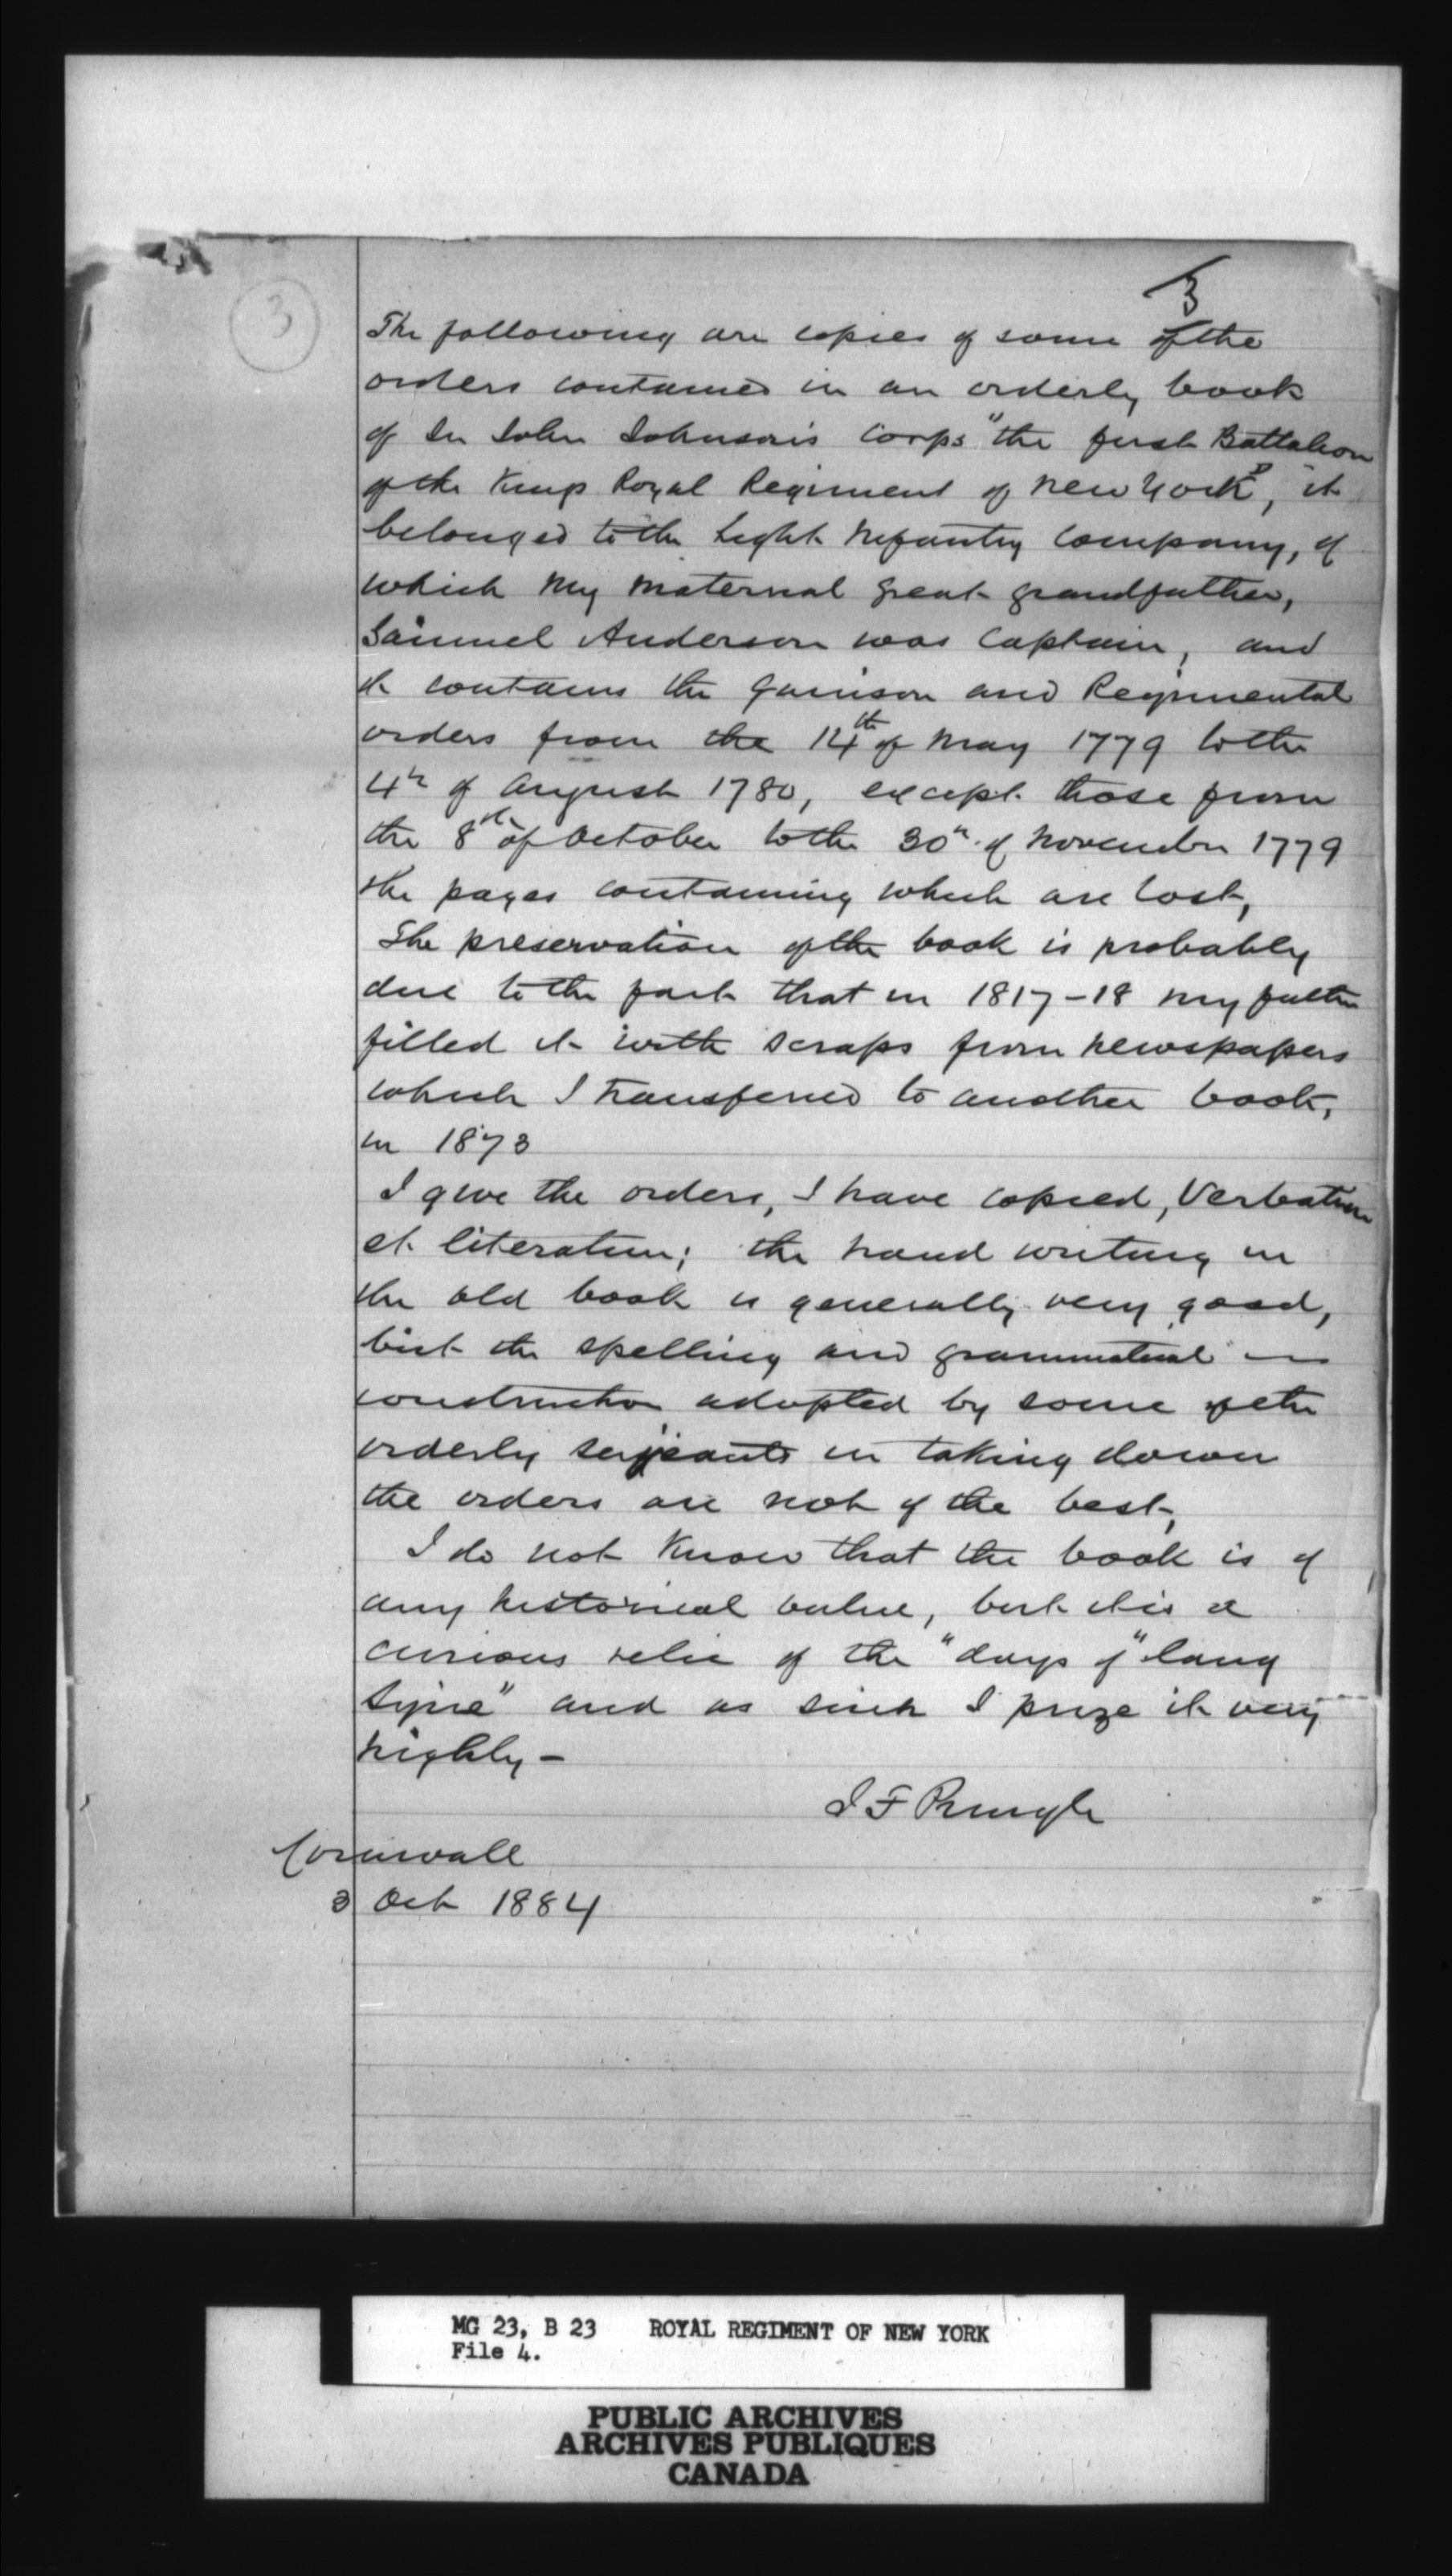 3
3
The following are copies of some of the
orders contained in an orderly book
of Sir John Johnson's Corps "the first Battalion
of the Kings Royal Regiment of New York", it
belonged to the Light Infantry Company, of
which my maternal great grandfather,
Samuel Anderson was Captain, and
it contains the Garrison and Regimental
orders from the 14th of May 1779 to the
4th of August 1780, except those from
the 8th of October to the 30th of November 1779
the pages containing which are lost,
The preservation of the book is probably
due to the fact that in 1817-18 my father
filled it with scraps from newspapers
which I transferred to another book,
in 1873
I give the orders, I have copied, Verbatim
et literatim; the hand writing in
the old book is generally very good,
but the spelling and grammatical —
construction adopted by some of the
orderly serjeants in taking down
the orders are not of the best,
I do not know that the book is of
any historical value, but it is a
curious relic of the "days of "lang
syne" and as such I prize it very
highly -
J F Pringle
Cornwall
3 Oct 1884
MG 23, B 23 ROYAL REGIMENT OF NEW YORK
File 4.
PUBLIC ARCHIVES
ARCHIVES PUBLIQUES
CANADA